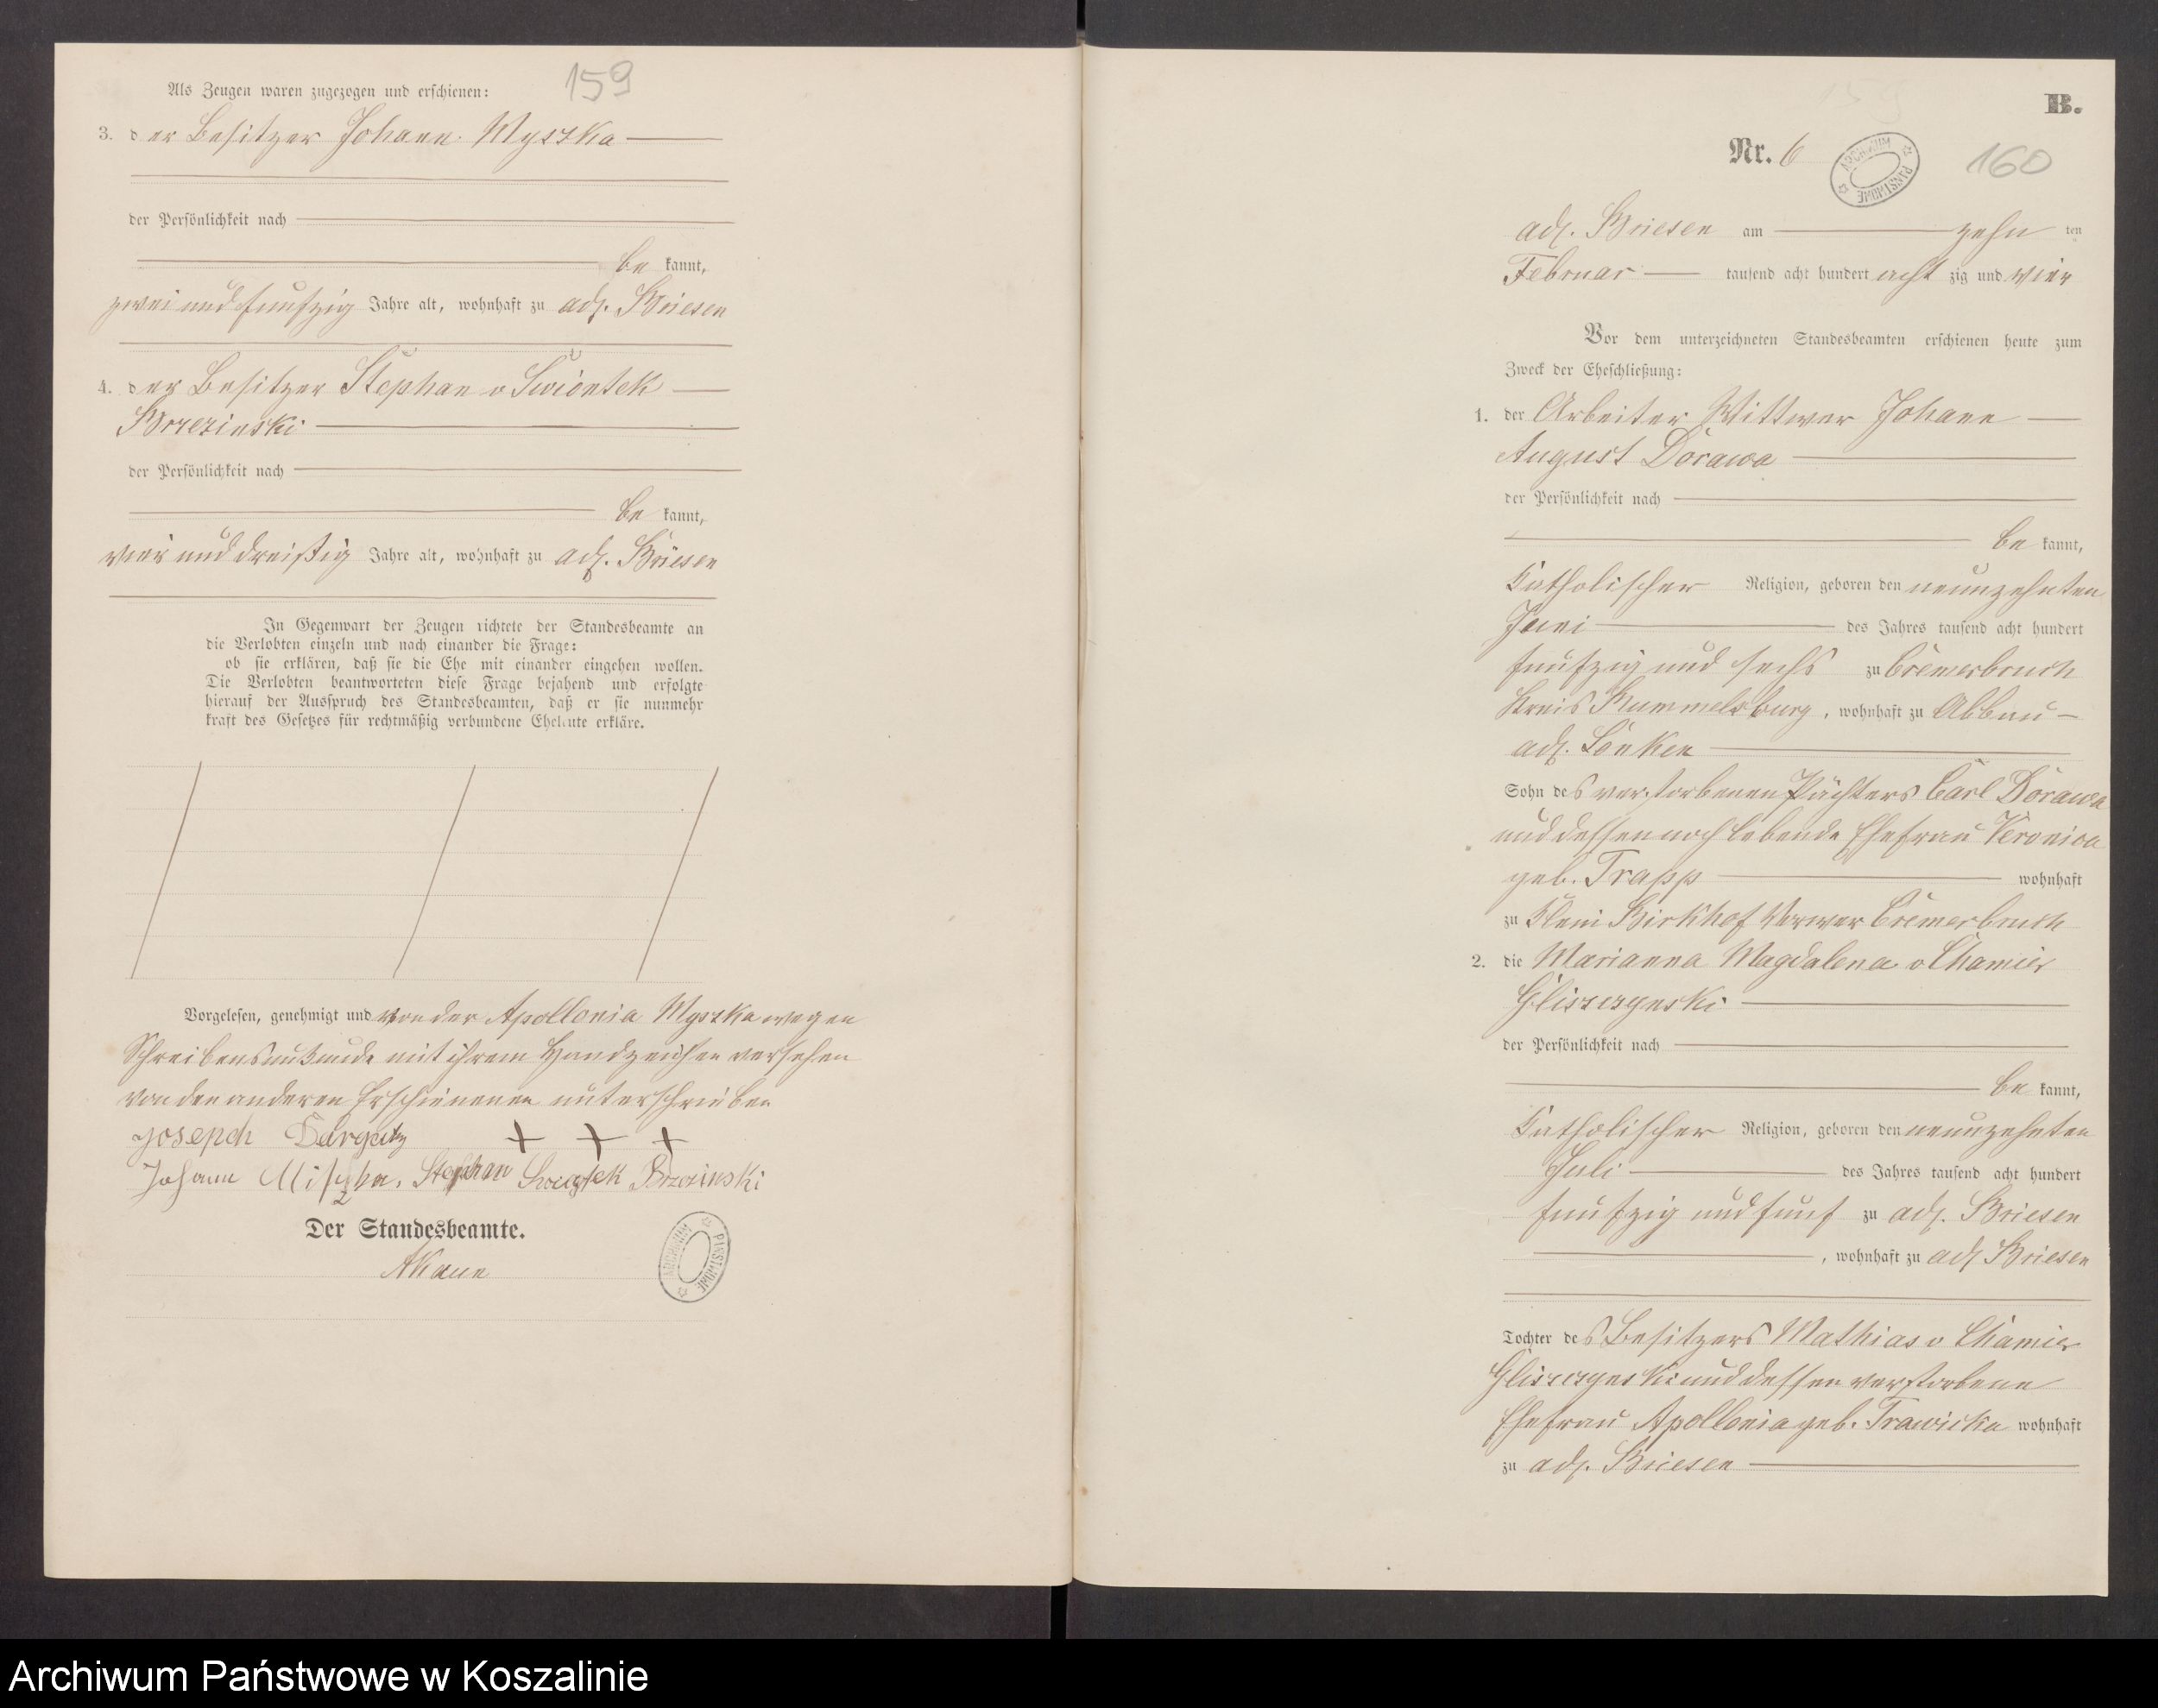 159
Als Zeugen waren zugezogen und erschienen:
3. der Besitzer Johann Myszka
der Persönlichkeit nach
be kannt,
zwei und funfzig Jahre alt, wohnhaft zu adl. Briesen
4. der Besitzer Stephan v Swiontek
Brzezinski
der Persönlichkeit nach
be kannt,
vier und dreißig Jahre alt, wohnhaft zu adl. Briesen
In Gegenwart der Zeugen richtete der Standesbeamte an
die Verlobten einzeln und nach einander die Frage:
ob sie erklären, daß sie die Ehe mit einander eingehen wollen.
Die Verlobten beantworteten diese Frage bejahend und erfolgte
hierauf der Ausspruch des Standesbeamten, daß er sie nunmehr
kraft des Gesetzes für rechtmäßig verbundene Eheleute erkläre.
Vorgelesen, genehmigt und von der Apollonia Myszka wegen
Schreibensunkunde mit ihrem Handzeichen versehen
von den anderen Erschienenen unterschrieben
Joseph +++
Johann Stephan Brzezinski
Der Standesbeamte.
ARCHIWUM PAŃSTWOWE
B.
Nr. 6
ARCHIWUM PAŃSTWOWE
160
adl. Briesen am zehn ten
Februar tausend acht hundert acht zig und vier
Vor dem unterzeichneten Standesbeamten erschienen heute zum
Zweck der Eheschließung:
1. der Arbeiter Wittwer Johann
August Dorawa
der Persönlichkeit nach
be kannt,
Katholischer Religion, geboren den neunzehnten
Juni des Jahres tausend acht hundert
funfzig und sechs zu Cremerbruch
Kreis Rummelsburg, wohnhaft zu Abbau
adl. Lonken
Sohn des verstorbenen Pächters Carl Dorawa
und dessen noch lebende Ehefrau Veronica
geb. Trapp wohnhaft
zu Klein Birkhof Cremerbruch
2. die Marianna Magdalena v Chamier
Gliszczynski
der Persönlichkeit nach
be kannt,
Katholischer Religion, geboren den neunzehnten
Juli des Jahres tausend acht hundert
funfzig und funf zu adl. Briesen
, wohnhaft zu adl Briesen
Tochter des Besitzers Mathias v Chamier
Gliszczynski und dessen verstorbene
Ehefrau Apollonia geb. Trawicka wohnhaft
zu adl. Briesen
Archiwum Państwowe w Koszalinie